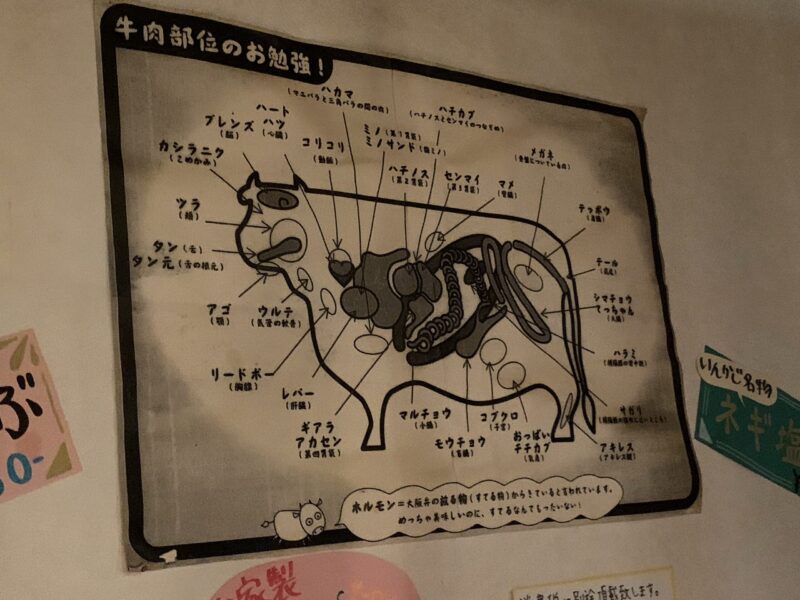 牛肉部位のお勉強!
ハカマ
ハチカブ
(ハチノスとセンマイのつなぎめ)
ハート
ハツ
(心臓)
ブレンズ
(脳)
コリコリ
(動脈)
ミノ(第1胃袋)
ミノサンド(熊ミノ)
カシラニク
(こめかみ)
ハチノス
(第2胃袋)
センマイ
(第3胃袋)
マメ
(腎臓)
メガネ
ツラ
(顔)
テッポウ
(直腸)
タン(舌)
タン元(舌の根元)
テール
(尻尾)
アゴ
(顎)
ウルテ
(気管の軟骨)
シマチョウ
てっちゃん
(大腸)
ハラミ
リードボー
(胸腺)
レバー
(肝臓)
サガリ
ギアラ
アカセン
(第四胃袋)
マルチョウ
(小腸)
モウチョウ
(盲腸)
コブクロ
(子宮)
おっぱい
チチカブ
(乳房)
アキレス
(アキレス腱)
ホルモン=大阪弁の放る物(すてる物)からきていると言われています。
めっちゃ美味しいのに、すてるなんてもったいない!
ぶ
0-
いんかじ名物
ネギ塩
家製